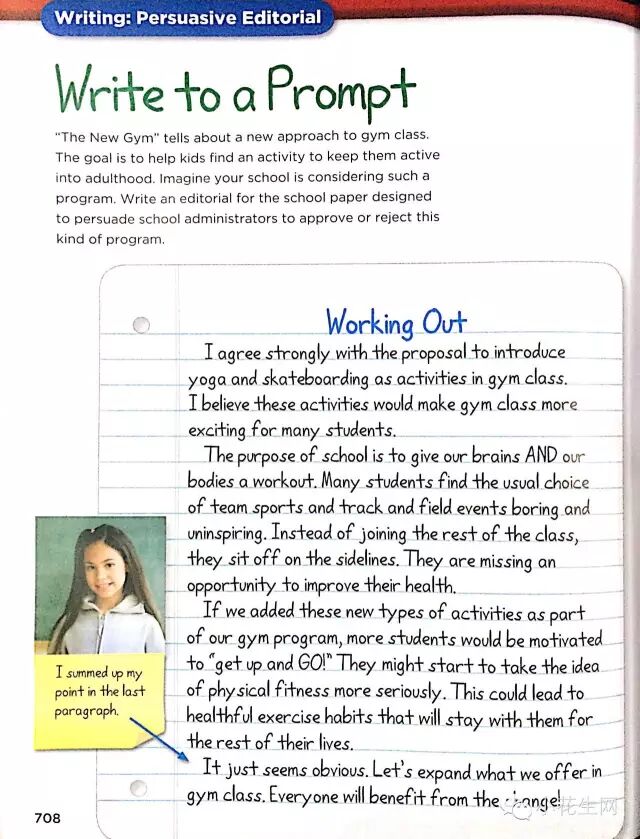 Writing: Persuasive Editorial
Write to a Prompt
"The New Gym" tells about a new approach to gym class.
The goal is to help kids find an activity to keep them active
into adulthood. Imagine your school is considering such a
program. Write an editorial for the school paper designed
to persuade school administrators to approve or reject this
kind of program.
Working Out
I agree strongly with the proposal to introduce
yoga and skateboarding as activities in gym class.
I believe these activities would make gym class more
exciting for many students.
The purpose of school is to give our brains AND our
bodies a workout. Many students find the usual choice
of team sports and track and field events boring and
uninspiring. Instead of joining the rest of the class,
they sit off on the sidelines. They are missing an
opportunity to improve their health.
If we added these new types of activities as part
of our gym program, more students would be motivated
to "get up and GO!" They might start to take the idea
of physical fitness more seriously. This could lead to
healthful exercise habits that will stay with them for
the rest of their lives.
It just seems obvious. Let's expand what we offer in
gym class. Everyone will benefit from the change!
I summed up my
point in the last
paragraph.
708
小花生网